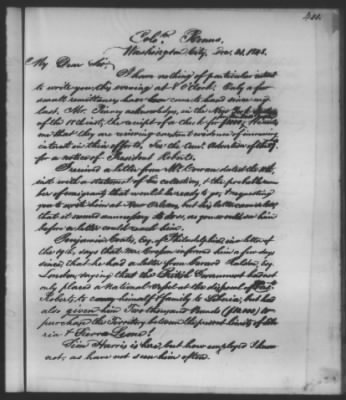 Colo. Rooms.
Washington City, Dec. 21, 1848.
My Dear Sir:
I have nothing of particular interest
to write you this evening at 8 o'clock. Only a few
small remittances have come to hand since my
last. Mr. Pinney acknowledges, in the New York
of the 18th inst., the receipt of a check for and
me that they are receiving constant evidence of increasing
interest in their efforts. See the Com. Advertiser of the
for a notice of President Roberts.
I received a letter from Mr. Cowan dated the
inst. with a statement of the collections, & the probable num-
ber of emigrants that would be ready to go; & requesting
you to write him at New Orleans, but his letter came so late,
that it seemed unnecessary to do so, as you would see him
before a letter could reach him.
Benjamin Coates, Esq. of Philadelphia, in a letter of
the 19th, says that Mr. informed him a few days
since that he had a letter from Gerard Ralston, Esq.
London, saying that the British Government had not
only placed a National Vessel at the disposal of Pres.
Roberts, to convey himself & family to Liberia; but had
also given him Two thousand Pounds ($10,000) to
purchase the Territory between the present limits of Libe-
ria & Sierra Leone!
Sim Harris is here, but how employed I know
not; as have not seen him often.